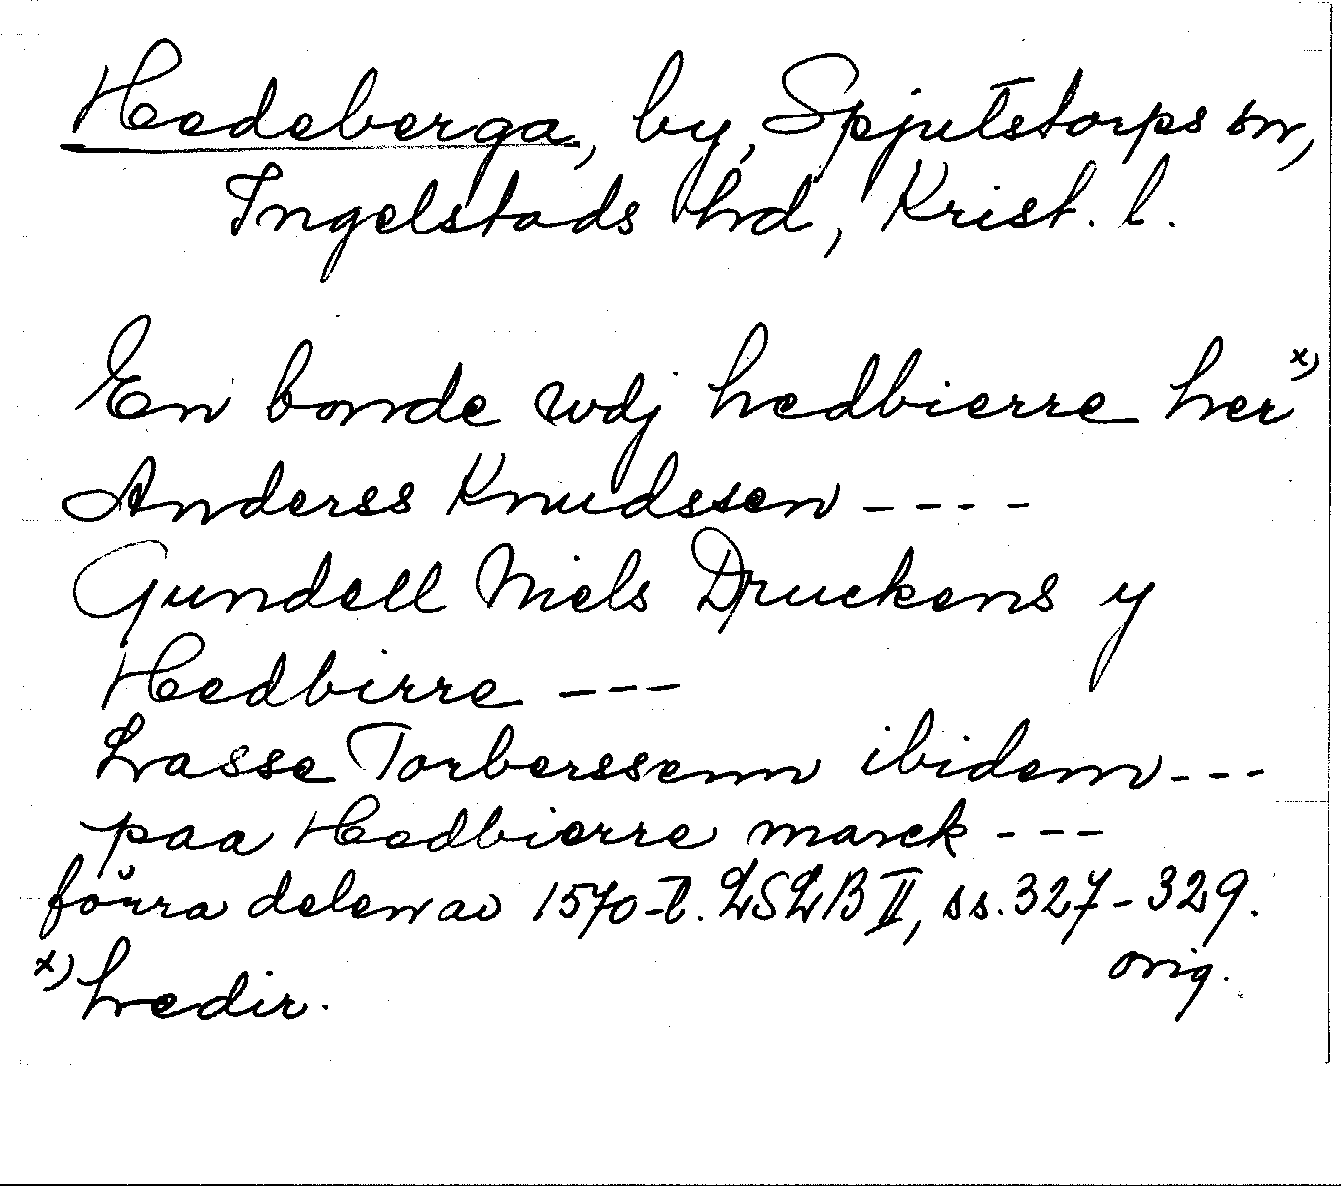 Hedeberga, by, Spjutstorps sn,
Ingelstads hrd, Krist. l.
En bonde wdj hedbierre her x)
Anderss Knudssen - - - -
Gundell Niels Druckens y
Hedbirre - - -
Lasse Torberssenn ibidem - - -
paa Hedbierre marck - - -
förra delen av 1570-t. LSLB II, ss. 327-329.
orig.
x) hedir.